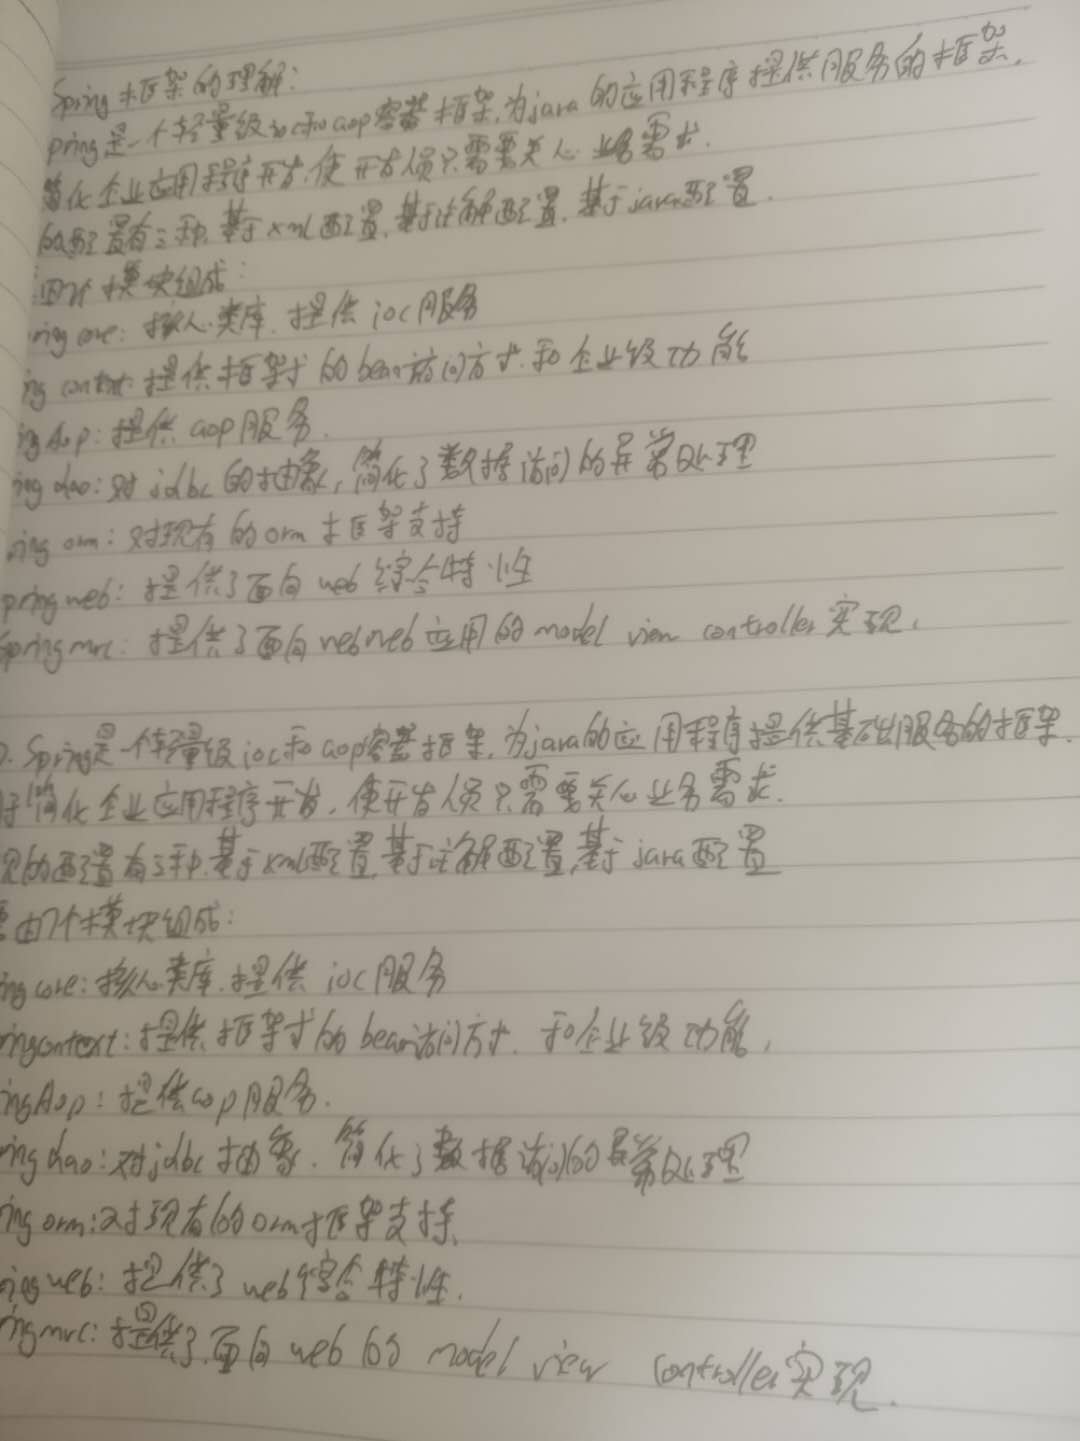 Spring框架的理解:
pring是一个轻量级ioc和aop容器框架,为java的应用程序提供服务的框架.
简化企业应用程序开发,使开发人员只需要关心业务需求.
的配置有三种,基于xml配置,基于注解配置,基于java配置.
由7个模块组成:
ring core: 核心类库,提供ioc服务
ng context: 提供框架式的bean访问方式,和企业级功能
ing Aop: 提供aop服务.
ing dao: 对jdbc的抽象,简化了数据访问的异常处理
ring orm: 对现有的orm框架支持
pring web: 提供了面向web综合特性
Spring mvc: 提供了面向webweb应用的model view controller实现.
Spring是一个轻量级ioc和aop容器框架,为java的应用程序提供基础服务的框架.
简化企业应用程序开发,使开发人员只需要关心业务需求.
见的配置有三种,基于xml配置,基于注解配置,基于java配置
要由7个模块组成:
ing core: 核心类库,提供ioc服务
ringcontext: 提供框架式的bean访问方式,和企业级功能,
ingAop: 提供aop服务.
ring dao: 对jdbc抽象,简化了数据访问的异常处理
ring orm: 对现有的orm框架支持,
ring web: 提供了web综合特性.
ring mvc: 提供了,面向web的model view controller实现.